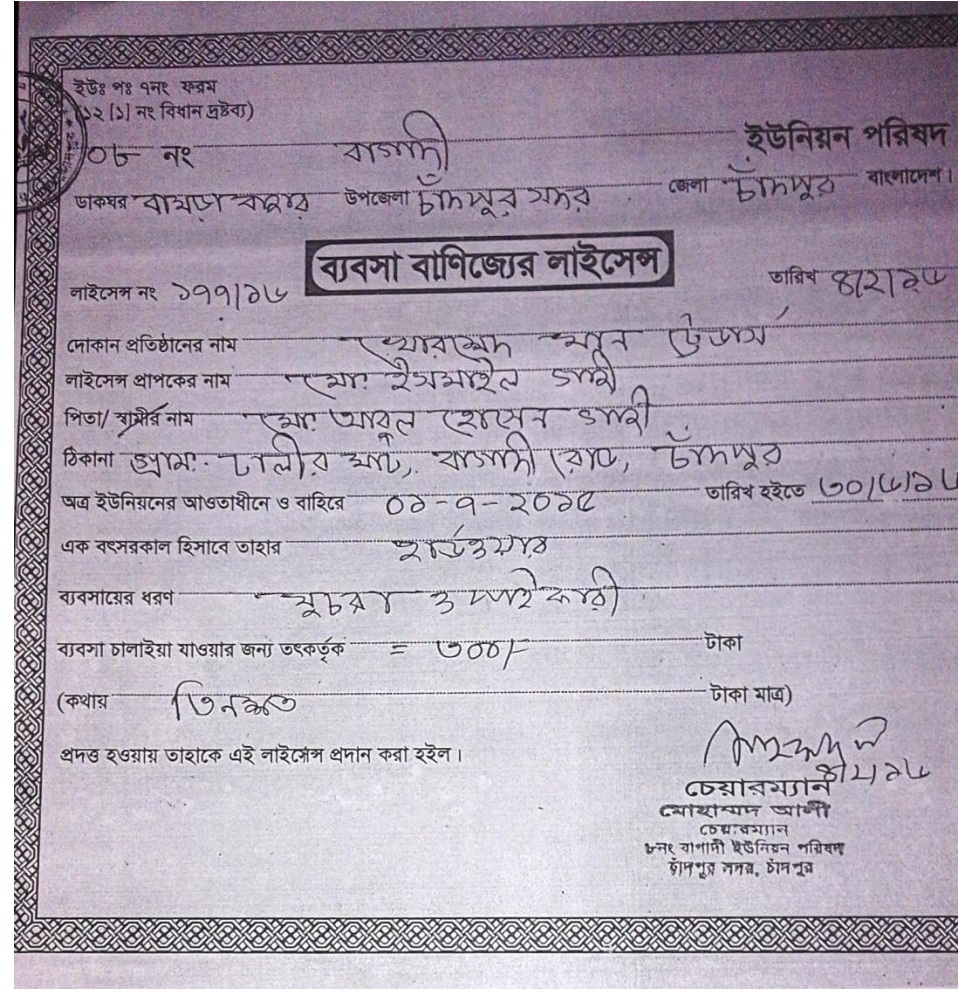 ইউঃ পঃ ৭নং ফরম
(১২ [১] নং বিধান দ্রষ্টব্য)
০৮ নং বাগাদী ইউনিয়ন পরিষদ
ডাকঘর বাগড়া বাজার উপজেলা চাঁদপুর সদর জেলা চাঁদপুর বাংলাদেশ।
ব্যবসা বাণিজ্যের লাইসেন্স
লাইসেন্স নং ১৭৭/১৬ তারিখ ৪/২/১৬
দোকান প্রতিষ্ঠানের নাম খোরশেদ খান ট্রেডার্স
লাইসেন্স প্রাপকের নাম মো: ইসমাইল গাজী
পিতা/ স্বামীর নাম মো: আবুল হোসেন গাজী
ঠিকানা গ্রাম: ঢালীর ঘাট, বাগাদী রোড, চাঁদপুর
অত্র ইউনিয়নের আওতাধীনে ও বাহিরে ০১-৭-২০১৫ তারিখ হইতে ৩০/৬/১৬
এক বৎসরকাল হিসাবে তাহার হার্ডওয়্যার
ব্যবসায়ের ধরণ খুচরা ও পাইকারী
ব্যবসা চালাইয়া যাওয়ার জন্য তৎকর্তৃক = ৩০০/- টাকা
(কথায় তিনশত টাকা মাত্র)
প্রদত্ত হওয়ায় তাহাকে এই লাইসেন্স প্রদান করা হইল।
৪/২/১৬
চেয়ারম্যান
মোহাম্মদ আলী
চেয়ারম্যান
৮নং বাগাদী ইউনিয়ন পরিষদ
চাঁদপুর সদর, চাঁদপুর